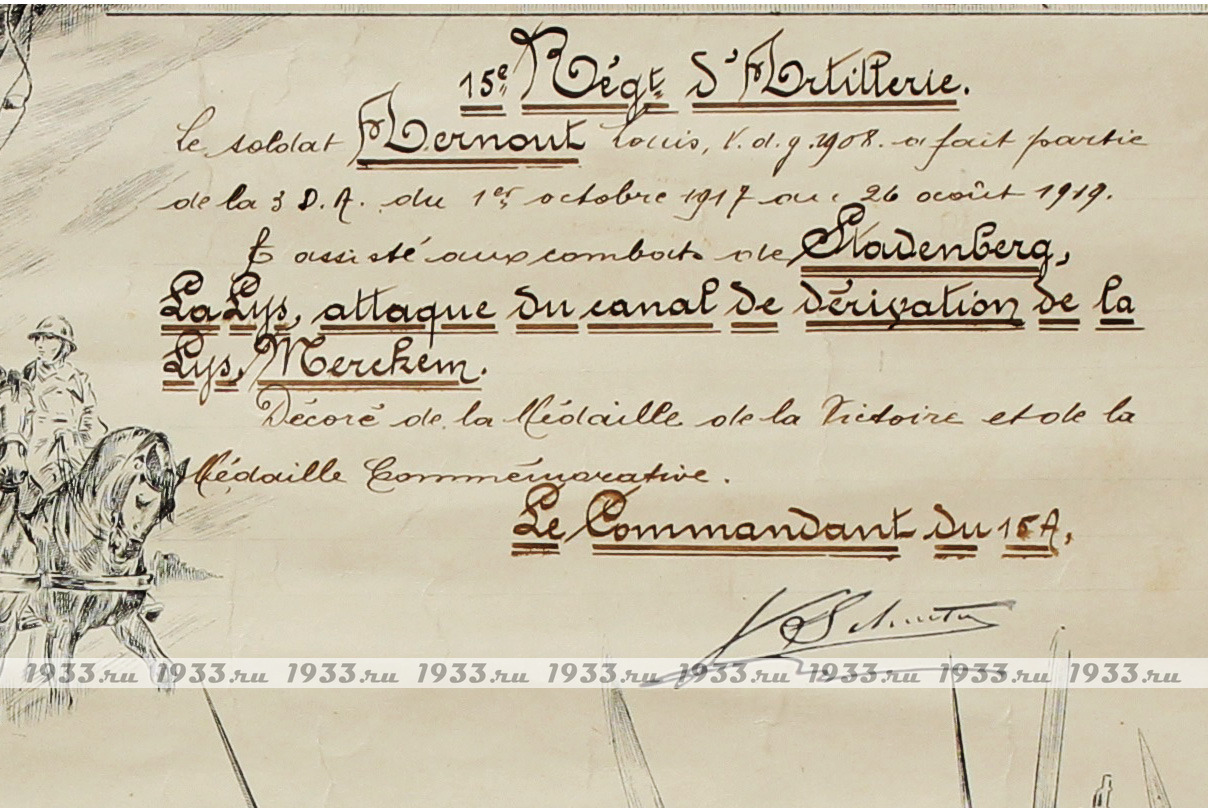 15e Régt d'Artillerie.
Le soldat Aernout Louis, V.d.g. 1908. a fait partie
de la 3 D.A. du 1er octobre 1917 au 26 août 1919.
A assisté aux combats de Stadenberg,
La Lys, attaque du canal de dérivation de la
Lys, Merckem.
Décoré de la Médaille de la Victoire et de la
Médaille Commémorative.
Le Commandant du 15A,
1933.ru 1933.ru 1933.ru 1933.ru 1933.ru 1933.ru 1933.ru 1933.ru 1933.ru